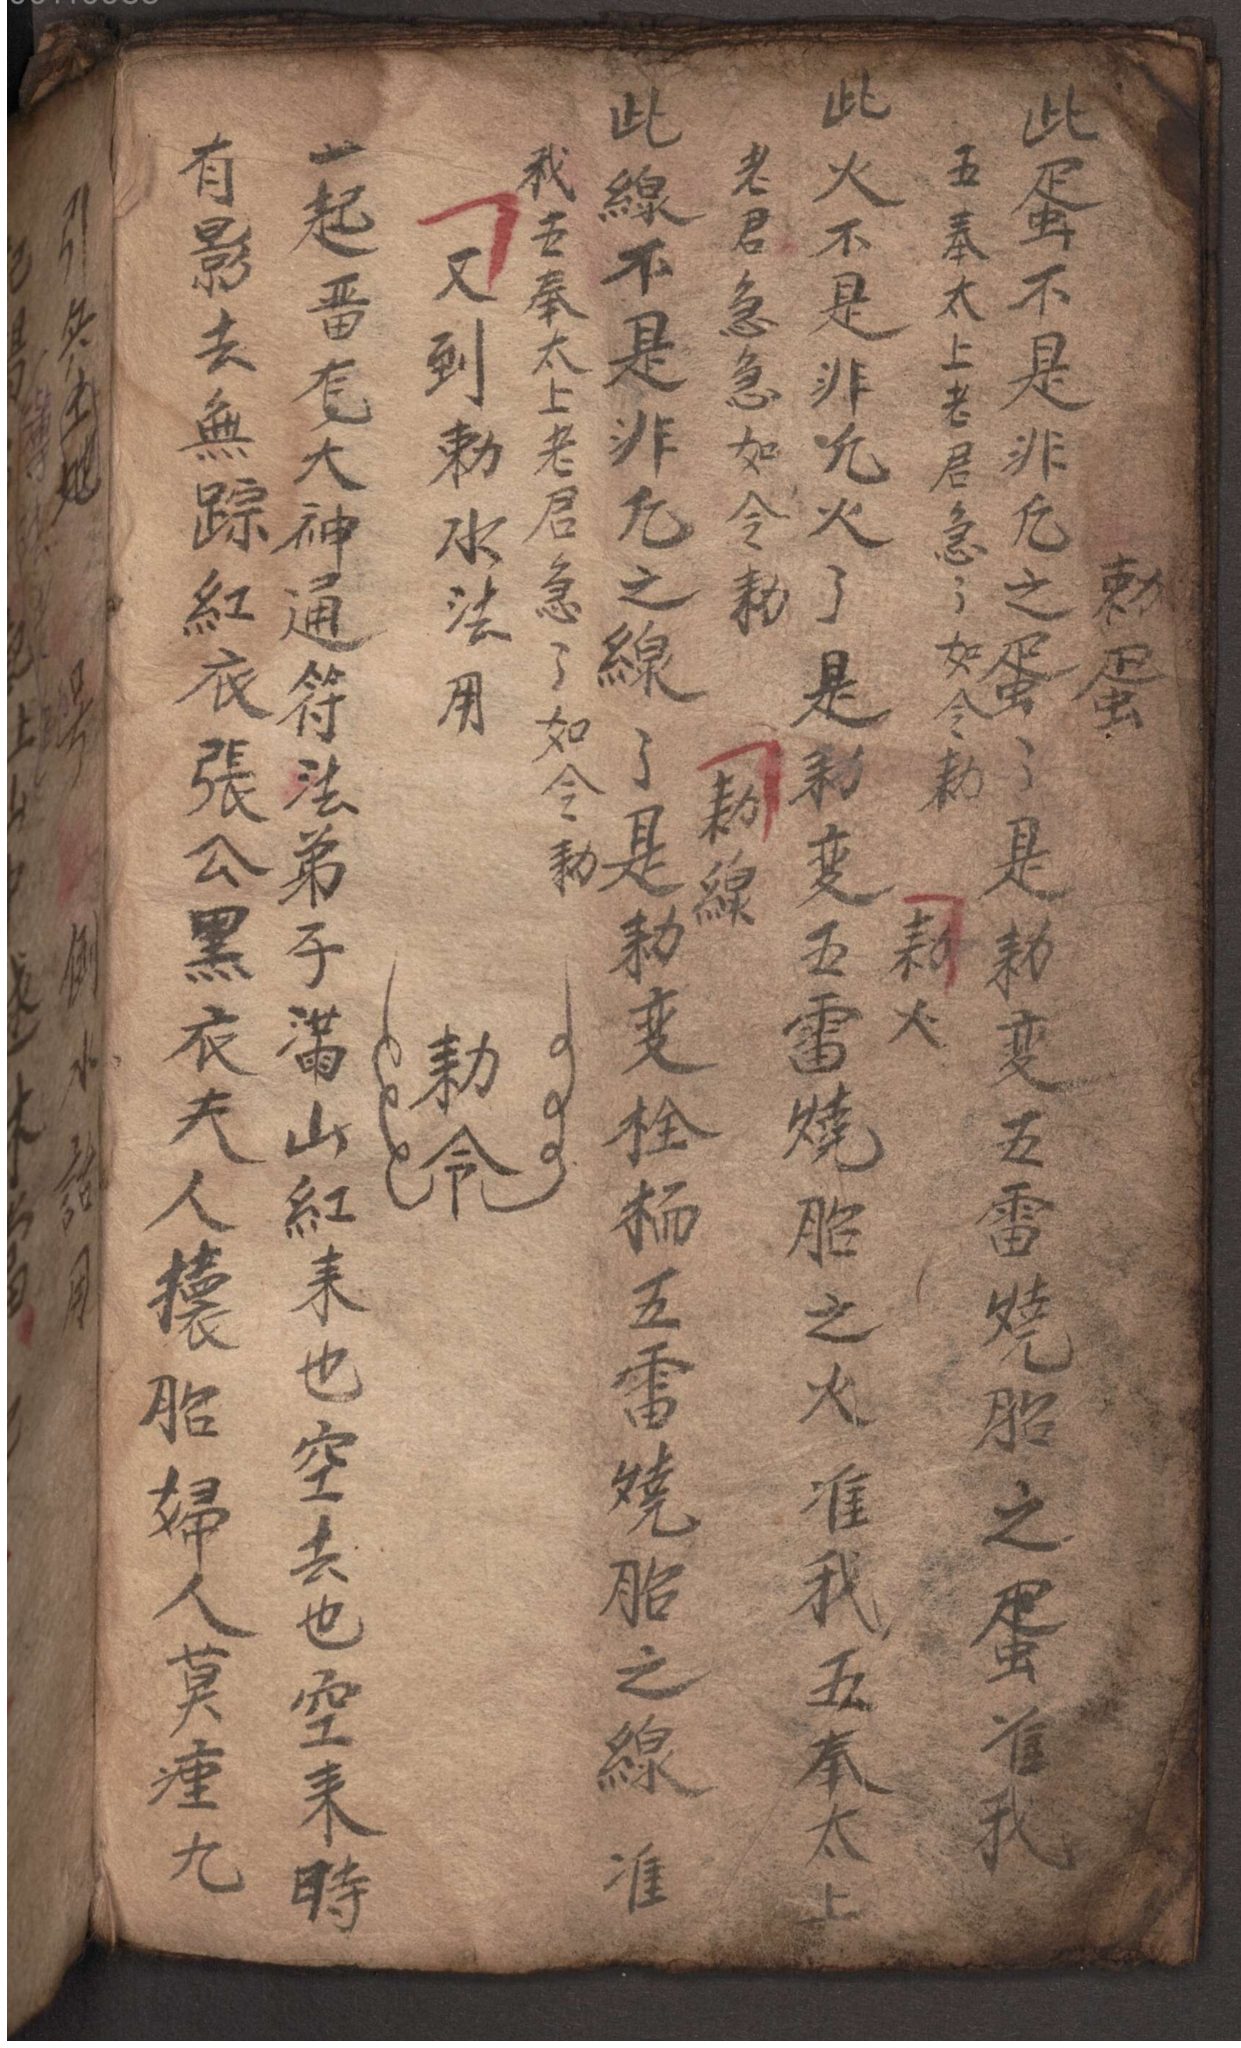 勅蛋
此蛋不是非凢之蛋蛋了是勑变五雷燒胎之蛋准我
五奉太上老君急了如令勑
勑火
此火不是非凢火了是勑变五雷燒胎之火准我五奉太上
老君急急如令勑
勑線
此線不是非凢之線了是勑变栓五雷燒胎之線准
我吉奉太上老君急了如令勑
又到勅水法用
勑令
一起晋大神通符法弟子滿山紅耒也空去也空耒時
有影去無踪紅衣張公黑衣夫人攘胎婦人莫瘇九